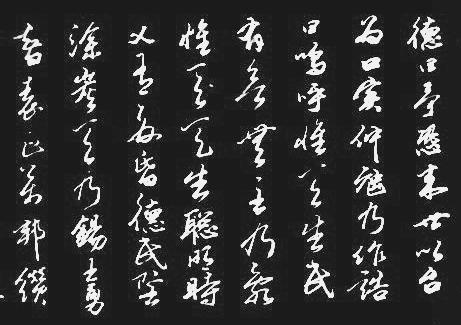 德曰予恐來世以台
為口實仲虺乃作誥
曰嗚呼惟天生民
有欲無主乃亂
惟天生聰明時
乂有夏昏德民墜
塗炭天乃錫王勇
智表正萬邦纘